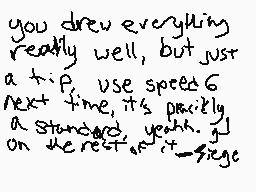 you drew everything
really well, but just
a tip, use speed 6
next time, it's prickly
a standard, yeahh. gj
on the rest of it -Siege